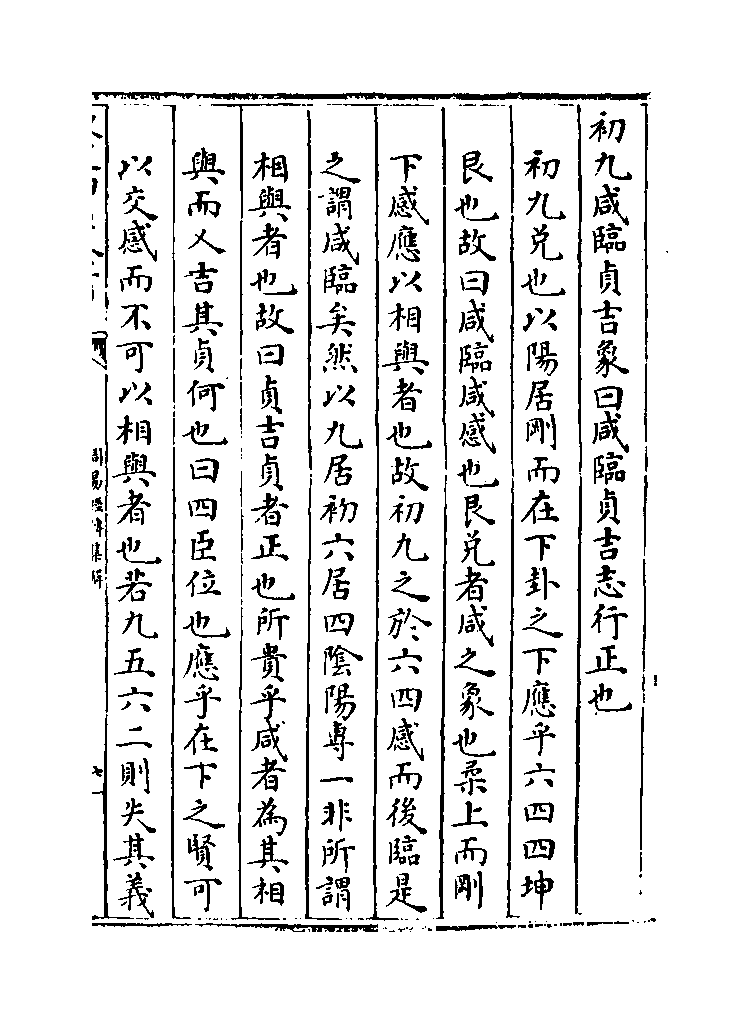 初九咸臨貞吉象曰咸臨貞吉志行正也
初九兌也以陽居剛而在下卦之下應乎六四四坤
艮也故曰咸臨咸感也艮兌者咸之象也柔上而剛
下感應以相與者也故初九之於六四感而後臨是
之謂咸臨矣然以九居初六居四陰陽專一非所謂
相與者也故曰貞吉貞者正也所貴乎咸者為其相
與而乂吉其貞何也曰四臣位也應乎在下之賢可
以交感而不可以相與者也若九五六二則失其義
周易經傳集解